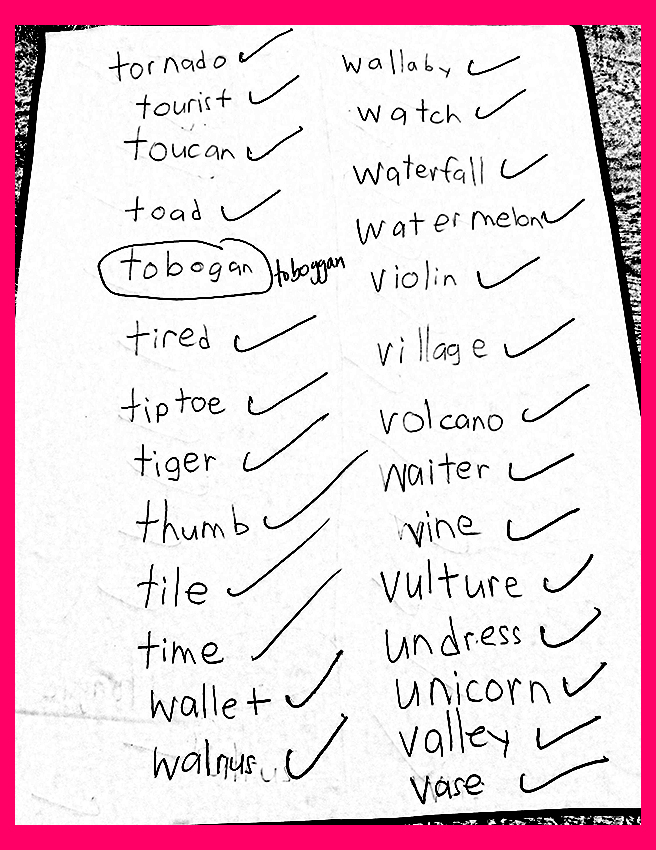 tornado
tourist
toucan
toad
tobogan toboggan
tired
tiptoe
tiger
thumb
tile
time
wallet
walnus
wallaby
watch
waterfall
watermelon
violin
village
volcano
waiter
vine
vulture
undress
unicorn
valley
vase